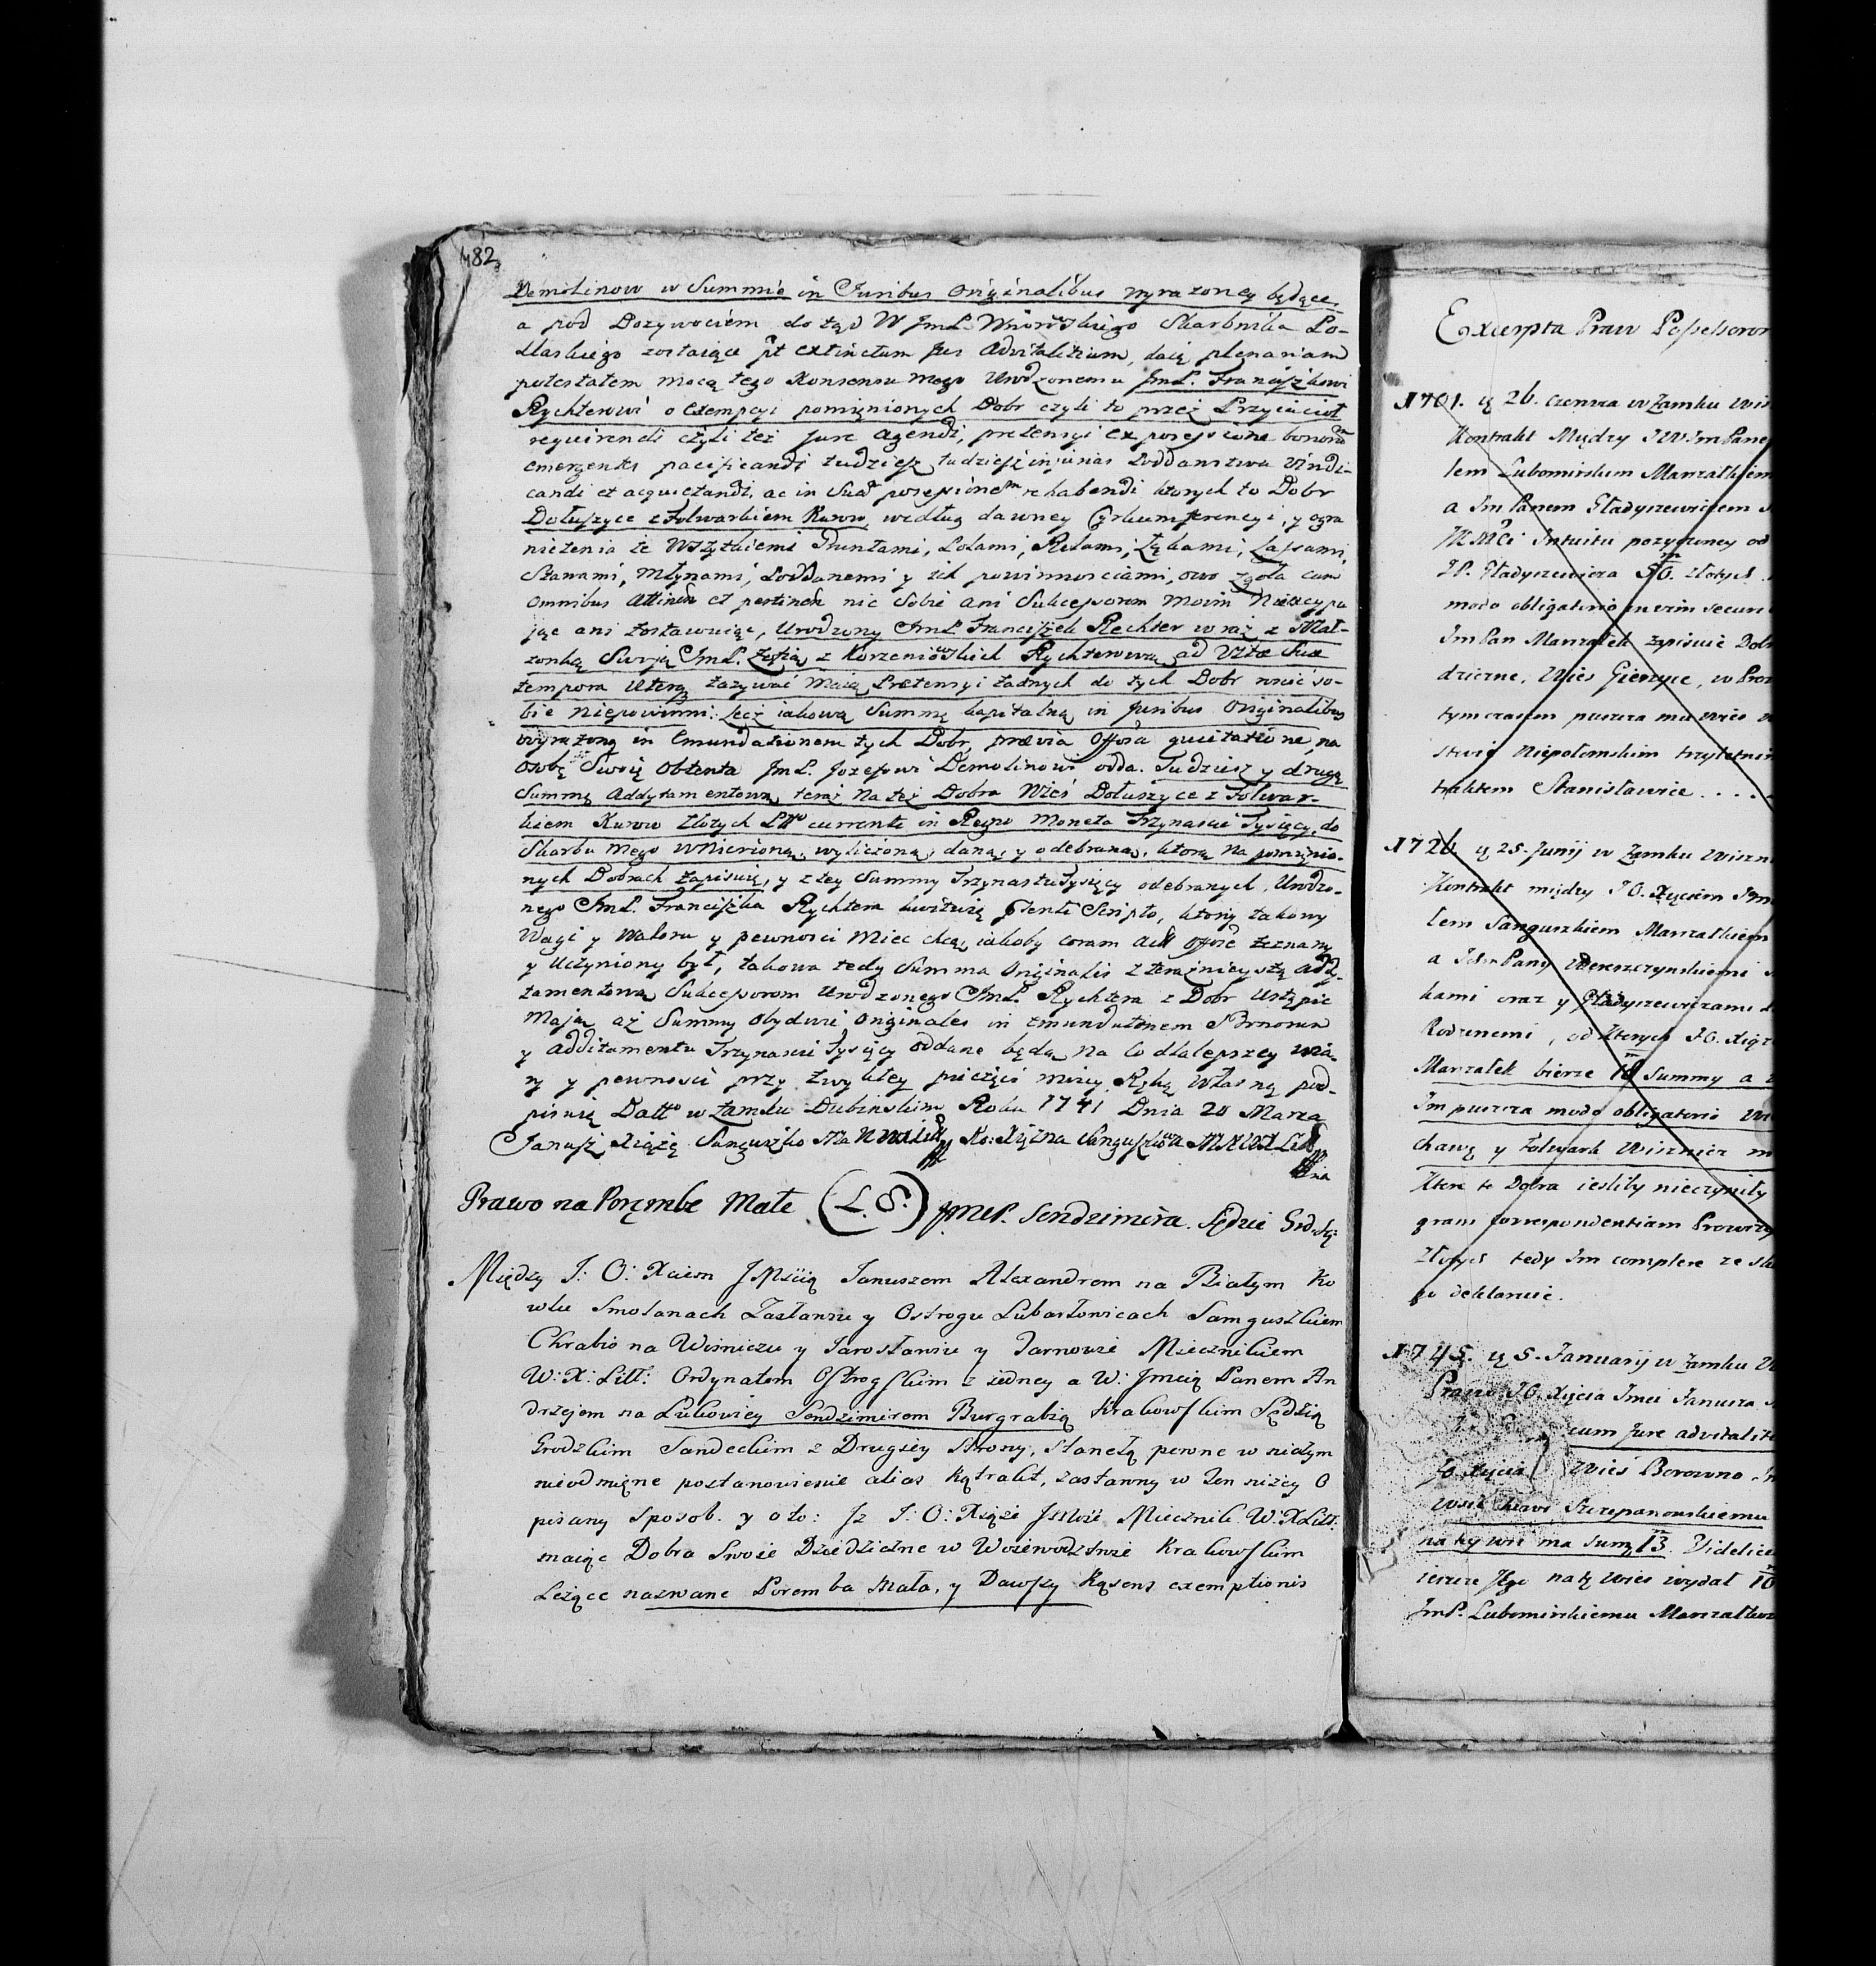 482
Demolinow w Summie in Juribus Originalibus wyrazoney będące,
a pod Dozywociem do tąd W JmP. Wniowskiego Skarbnika Po-
dlaskiego zostaiące pt extinctum Jus Advitalitium, daię plenariam
potestatem mocą tego Konsensu mego Urodzonemu JmP. Franciszkowi
Rychterowi o exempcyi pomięnionych Dobr czyli to przez Przyiacioł
requirendi czyli też Jure agendi, pretensyi ex possessione bonorum
emergentes pacificandi tudziesz tudziesz injurias Poddanstwa Vindi-
candi et acquietandi, ac in Suam possessionem rehabendi ktorych to Dobr
Dołuszyce z Folwarkiem Kurow, według dawney Cyrkumferencyi, y ogra
niczenia ze Wszytkiemi Gruntami, Polami, Rolami, Łękami, Lassami,
Stawami, Młynami, Poddanemi y ich powinnosciami, owo zgoła cum
omnibus Attinen et pertinen nic Sobie ani Sukcessorom Moim nieexcypu
jąc ani zostawuiąc, Urodzony JmP. Franciszek Rechter wraz z Mał-
żonką Swoją JmP. Zofią z Korzeniowskich Rychterową ad Vitæ Suæ
tempora Uterq zazywać Maią Pretensyi żadnych do tych Dobr roscić so-
bie niepowinni: Lecz iakową Summę kapitalną in Juribus Originalibus
wyrażoną in Emundationem tych Dobr, prævia Offosa quietatione, na
osobę Swoię Obtenta JmP. Jozefowi Demolinowi odda. Tudziesz y drugą
Summę Addytamentową teraz na też Dobra Wieś Dołuszyce z Folwar-
kiem Kurow Złotych Pol currente in Regno Moneta Trzynascie Tysięcy do
Skarbu Mego wniesioną, wyliczoną, daną, y odebraną, ktorą na pomięnio-
nych Dobrach Zapisuię, y z tey Summy Trzynastu Tysięcy odebranych, Urodzo-
nego JmP. Franciszka Rychtera kwituię pæsenti Scripto, ktory takowy
Wagi y Waloru y pewnosci Miec chcę, iakoby coram actis Offosè zeznany
y Uczyniony był, takowa tedy Summa Originalis z teraznieyszą addy-
tamentową Sukcessorom Urodzonego JmP. Rychtera z Dobr Ustąpic
Mają, aż Summy Obydwie Originales in emundationem
y additamentu Trzynascie Tysięcy oddane będą. Na Co dlalepszey wia-
ry y pewnosci przy zwykłey pieczęci moiey Ręką Własną pod-
pisuię Datto w Zamku Dubinskim Roku 1741 Dnia 20 Marca
Janusz Xiążę Sanguszko Ko: Xiężna Sanguszkowa MNWXLitt
Prawo na Porąmbe Małe (L.S.) JmP. Sendzimira. Sędzie Grd. Są:
Między J: O: Xciem JMścią Januszem Alexandrem na Białym Ko
wlu Smolanach Zasławiu y Ostrogu Lubartowicach Samguszkiem
Chrabio na Wisniczu y Jarosławiu y Tarnowie Miecznikiem
W: X: Litt: Ordynatem Ostrogskim z iedney a W: Jmcią Panem An
drzejem na Lukowicy Sendzimirem Burgrabią Krakowskim Sędzią
Grodzkim Sandeckim z Drugiey Strony, Staneło pewne w niczym
nieodmięne postanowienie alias Kątrakt, zastawny w ten niżey O
pisany sposob. y oto: Jz J: O: Xiąże JMość Miecznik W: X Litt:
maiąc Dobra Swoie Dziedziczne w Wojewodztwie Krakowskim
Leżące nazwane Poremba Mała, y Dawszy Kąsens exemptionis
Excerpta Praw Possessorow
1701. ą 26. Czerwca w Zamku Wis
Kontrakt Między JWJmPanem
lem Lubomirskim Marszałkiem
a JmPanem Gładyszewiczem
JKMci Intuitu pozyczoney od
JP. Gładyszewicza 50. złotych
modo obligatorio
JmPan Marszałek zapisuie Dob
dziczne, Wieś Gierzyce, w Prow
tymczasem puszcza mu wieś
stwie Niepołomskim trzyletnim
traktem Stanisławice . . . .
1726 ą 25. Junij w Zamku Wiszn
Kontrakt między JO. Xięciem Jm
łem Sanguszkiem Marszałkiem
a JchmPany Wereszczynskiemi
kami oraz y Gładyszewiczami
Rodzenemi, od Ktorych JO. Xiąż
Marszałek bierze 18 Summy a
Jm puszcza modo obligatorio Wi
chawę y Folwark Wisznicz
Ktore te Dobra iesliby nieczyniły
gram correspondentiam Prowizy
Złotych tedy Jm complere ze sk
go deklaruie.
1745. ą 5. Januarij w Zamku W
Prawo JO. Xięcia Jmci Janusza
cum Jure advitalit
JO Xięcia Wieś Borowno
Szczepanowskiemu
na tey wsi ma Sumę 13. Videlicet
ieszcze Jego na tę Wieś wydał 10
JmP. Lubomirskiemu Marszałkow